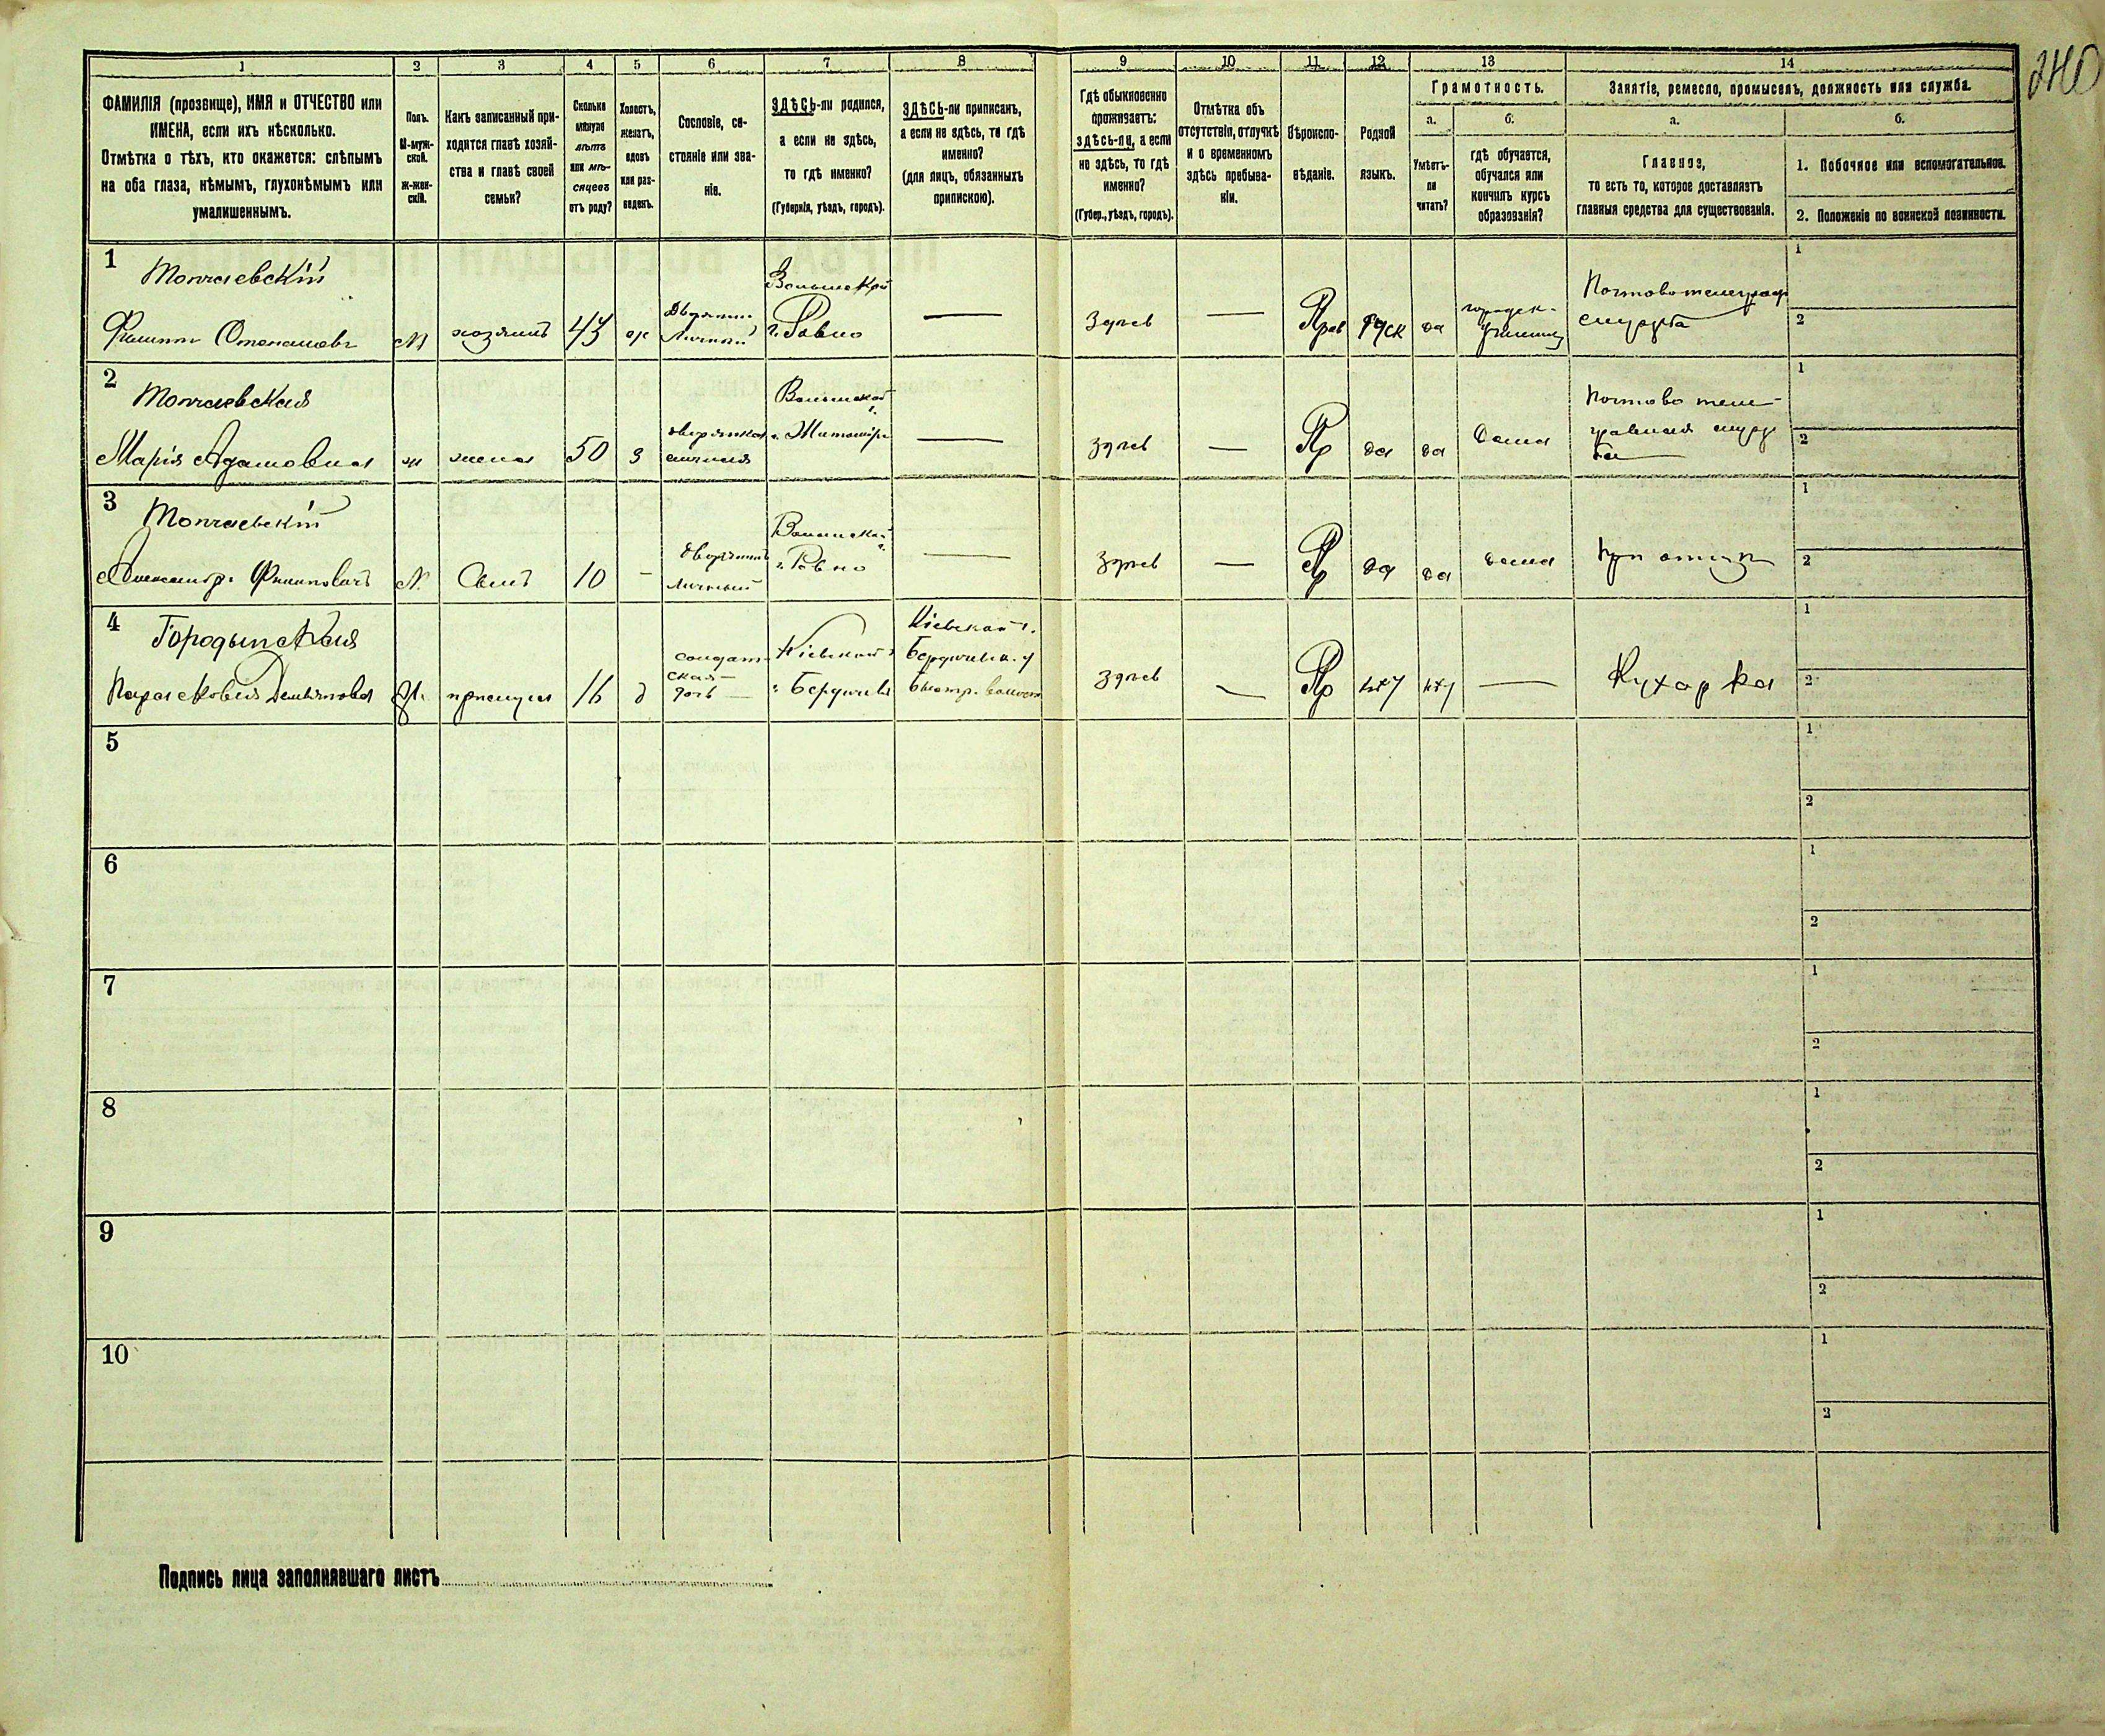 240
1 2 3 4 5 6 7 8 9 10 11 12 13 14
ФАМИЛІЯ (прозвище), ИМЯ и ОТЧЕСТВО или
ИМЕНА, если ихъ нѣсколько.
Отмѣтка о тѣхъ, кто окажется: слѣпымъ
на оба глаза, нѣмымъ, глухонѣмымъ или
умалишеннымъ.
Полъ.
М-муж-
ской.
Ж-жен-
скій.
Какъ записанный при-
ходится главѣ хозяй-
ства и главѣ своей
семьи?
Сколько
минуло
лѣтъ
или мѣ-
сяцевъ
отъ роду?
Холостъ,
женатъ,
вдовъ
или раз-
веденъ.
Сословіе, со-
стояніе или зва-
ніе.
ЗДѢСЬ-ли родился,
а если не здѣсь,
то гдѣ именно?
(Губернія, уѣздъ, городъ).
ЗДѢСЬ-ли приписанъ,
а если не здѣсь, то гдѣ
именно?
(для лицъ, обязанныхъ
припискою).
Гдѣ обыкновенно
проживаетъ:
здѣсь-ли, а если
не здѣсь, то гдѣ
именно?
(Губер., уѣздъ, городъ).
Отмѣтка объ
отсутствіи, отлучкѣ
и о временномъ
здѣсь пребыва-
ніи.
Вѣроиспо-
вѣданіе.
Родной
языкъ.
Грамотность.
а.
Умѣетъ-
ли
читать?
б.
гдѣ обучается,
обучался или
кончилъ курсъ
образованія?
Занятіе, ремесло, промыселъ, должность или служба.
а.
Главное,
то есть то, которое доставляетъ
главныя средства для существованія.
б.
1. Побочное или вспомогательное.
2. Положеніе по воинской повинности.
1
Топчаевскій
Филиппъ Степановъ
М
хозяинъ
43
ж
Дворянин
Личный
Волынской
г. Ровно
—
Здѣсь
—
Прав
Руск
да
городск.
училищ
Почтово телеграф
служба
1
2
2
Топчаевская
Марія Адамовна
ж
жена
50
з
дворянка
личная
Волынской г.
г. Житомир
—
здѣсь
—
Пр
да
да
дома
Почтово теле-
графная служ
ба
1
2
3
Топчаевскій
Александр. Филиповичъ
М.
Сынъ
10
-
дворянинъ
личный
Волынской г.
г. Ровно
—
Здѣсь
—
Пр
да
да
дома
при отцѣ
1
2
4
Городынская
Парасковия Демьянова
Ж.
прислуга
16
д
солдат-
ская
дочь
Кіевской г
г. Бердичевъ
Кіевской г.
Бердичев. у
Быстр. волост
Здѣсь
—
Пр
нѣт
—
Кухарка
1
2
5
1
2
6
1
2
7
1
2
8
1
2
9
1
2
10
1
2
Подпись лица заполнявшаго листъ